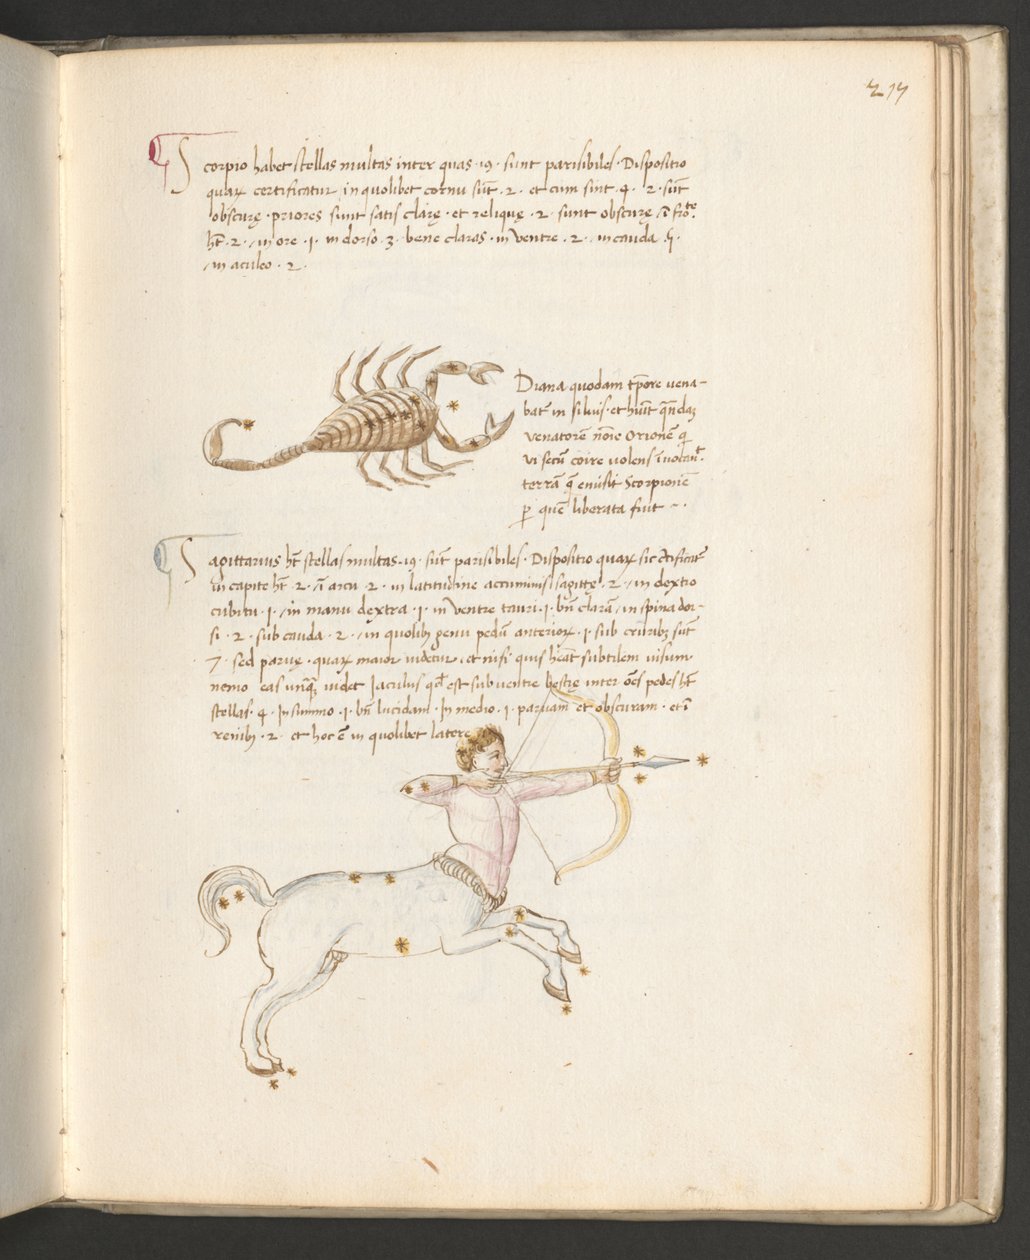 217
Scorpio habet stellas multas inter quas .19. sunt parisibiles. Dispositio
quaꝝ certificatur in quolibet cornu sūt .2. et cum sint .4. 2. sūt
obscurę. priores sunt satis clarę. et reliquę .2. sunt obscurę, ī frōte.
hт̄ .2. in ore .1. in dorso .3. bene claras. in ventre .2. in cauda .5.
in aculeo .2.
Diana quodam tp̄ore vena-
bat̄ in siluis. et
venatorē noīe Orionē q
vi secū coire volens īuocaut.
terrā q̄ emisit Scorpionē
ꝑ quē liberata fuit
Sagittarius hт̄ stellas multas .19. sūt parisibiles. Dispositio quaꝝ sic
in capite hт̄ .2. ī arcu .2. in latitudine accuminis sagittę .2. in dextro
cubitu .1. in manu dextra .1. in ventre tauri .1. bn̄ clarā, in spina dor-
si .2. sub cauda .2. in quolibꝫ genu pedū anterioꝝ .1. sub cruribꝫ sūt
7. sed paruę. quaꝝ maior videtur. et nisi quis heāt subtilem visum
nemo eas unq̄ videt Iaculus est sub ventre bestię inter oēs pedes hт̄
stellas .4. In summo .1. bn̄ lucidam. In medio .1. paruam et obscuram. et ī
renibꝫ .2. et hoc ē in quolibet latere